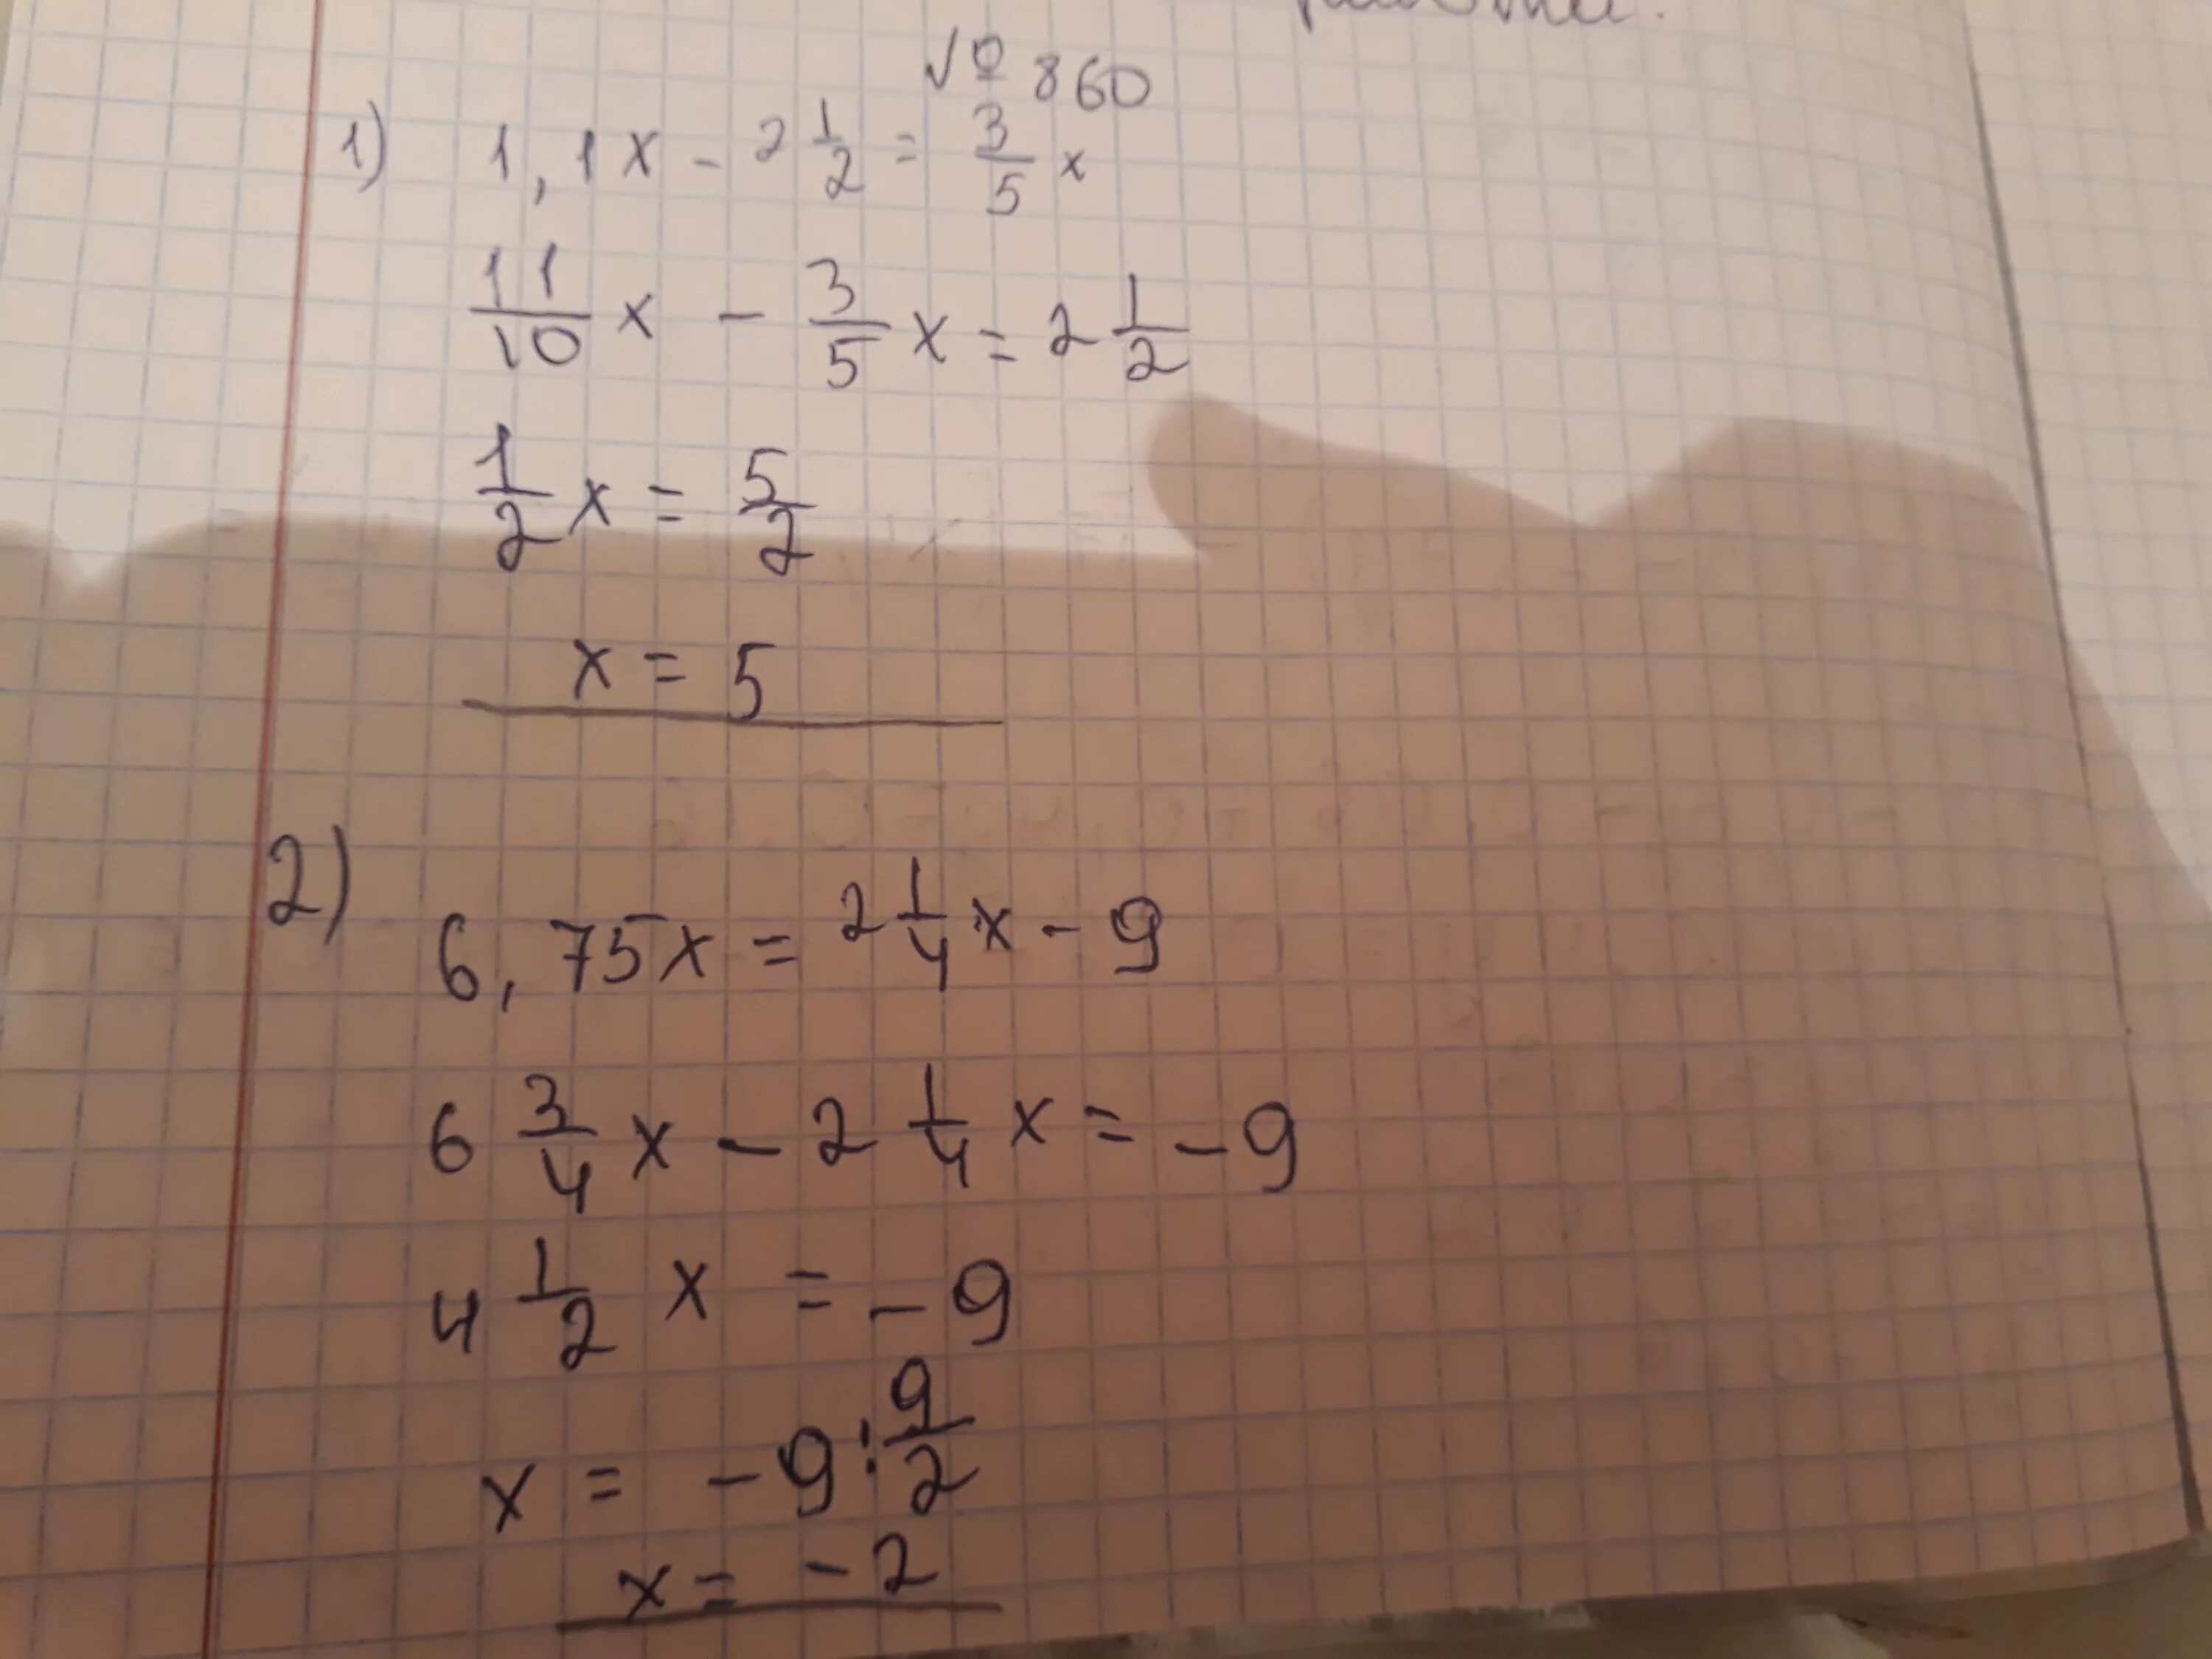 № 860
1) 1,1x - 2 1/2 = 3/5 x
11/10 x - 3/5 x = 2 1/2
1/2 x = 5/2
x = 5
2) 6,75x = 2 1/4 x - 9
6 3/4 x - 2 1/4 x = -9
4 1/2 x = -9
x = -9 : 9/2
x = -2